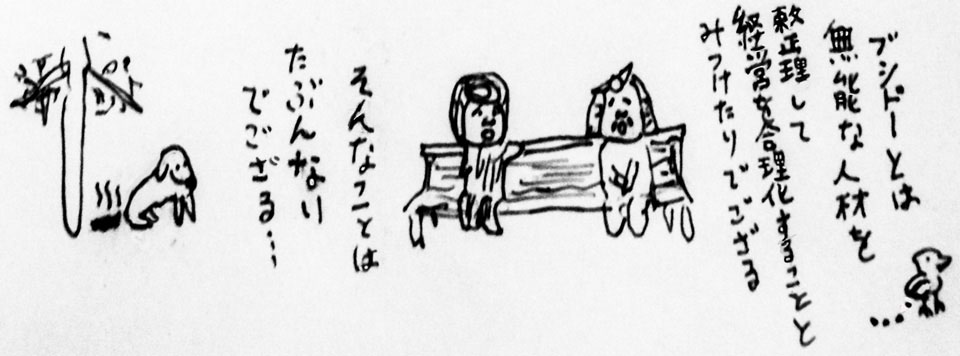 ブシドーとは
無能な人材を
整理して
経営を合理化することと
みつけたりでござる
そんなことは
たぶんない
でござる…